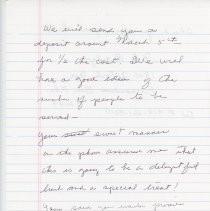 We will send you a
deposit around March 5th
for 1/2 the cost. We will
have a good idea of the
number of people to be
served —
Your sweet manner
on the phone assures me that
this is going to be a delightful
and a special treat!
You said you